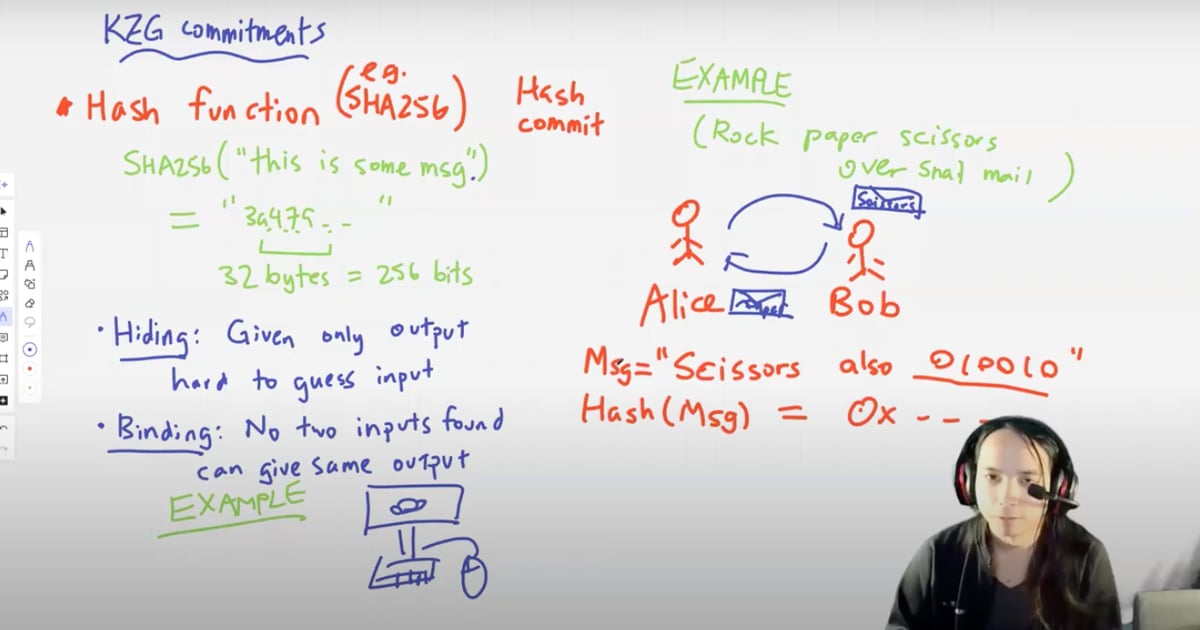 KZG commitments
Hash function (e.g. SHA256)
Hash
commit
SHA256("this is some msg.")
= "3a479... "
32 bytes = 256 bits
• Hiding: Given only output
hard to guess input
• Binding: No two inputs found
can give same output
EXAMPLE
EXAMPLE
(Rock paper scissors
over snail mail)
Scissors
Alice
Bob
Msg="Scissors also 010010"
Hash(Msg) = 0x ---